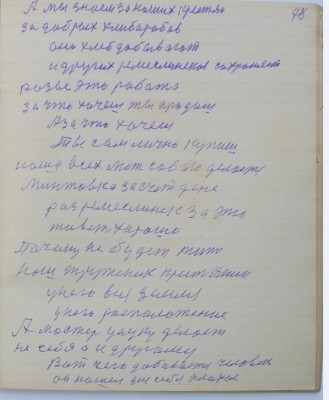 А мы знаем за наших крестян 48
за добрых хлиборобов
они хлеб добывают
и других ремеслинеков сохраняют
разве это работа
за что хочеш ты продаш
А за что хочеш
Ты сам лично купиш
наша всех мож собою делает
за счот
раз ремеслинек за это
живет харашо
Почему не будет жить
наш труженик
у него вся земля
у него расположение
А мастер
не себя а и другому
Вот чего добывает человек
он нашол для себя